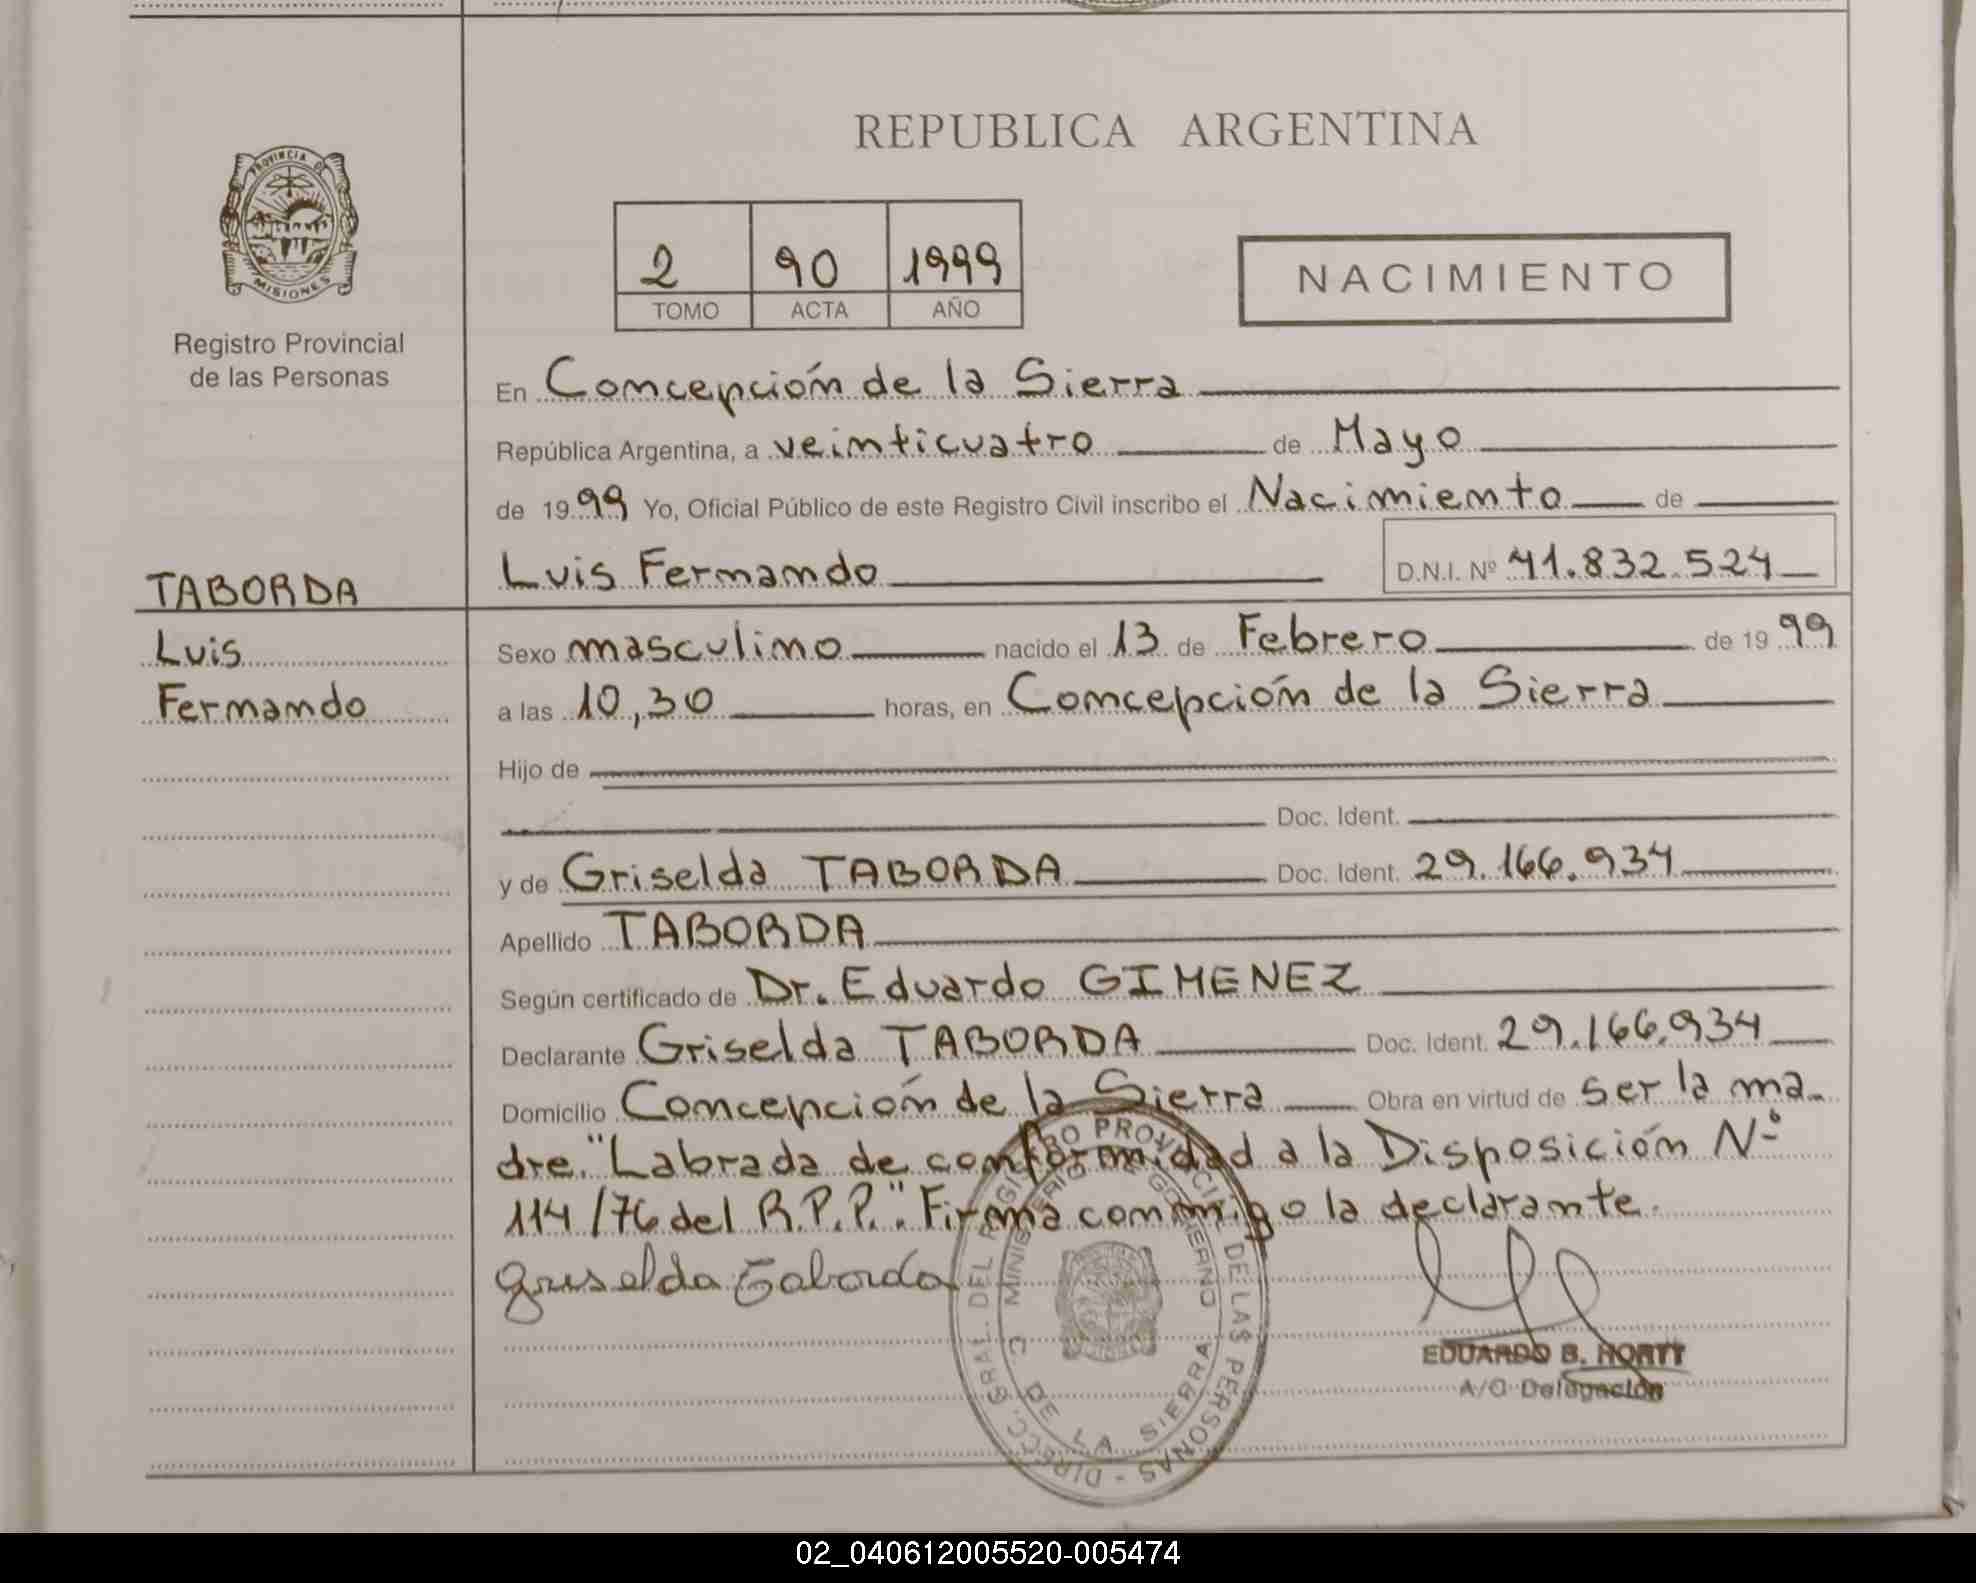 REPUBLICA ARGENTINA
PROVINCIA DE MISIONES
Registro Provincial
de las Personas
2 90 1999
TOMO ACTA AÑO
NACIMIENTO
En Concepción de la Sierra
República Argentina, a veinticuatro de Mayo
de 1999 Yo, Oficial Público de este Registro Civil inscribo el Nacimiento de
Luis Fernando D.N.I. Nº 41.832.524
TABORDA
Luis
Fernando
Sexo masculino nacido el 13 de Febrero de 1999
a las 10,30 horas, en Concepción de la Sierra
Hijo de
Doc. Ident.
y de Griselda TABORDA Doc. Ident. 29.166.934
Apellido TABORDA
Según certificado de Dr. Eduardo GIMENEZ
Declarante Griselda TABORDA Doc. Ident. 29.166.934
Domicilio Concepción de la Sierra Obra en virtud de ser la ma-
dre. "Labrada de conformidad a la Disposición Nº
114/76 del R.P.P.". Firma conmigo la declarante.
Griselda Taborda
DIRECC. GRAL. DEL REGISTRO PROVINCIAL DE LAS PERSONAS -
MINISTERIO DE GOBIERNO
C. DE LA SIERRA
EDUARDO B.
A/C Delegación
02_040612005520-005474